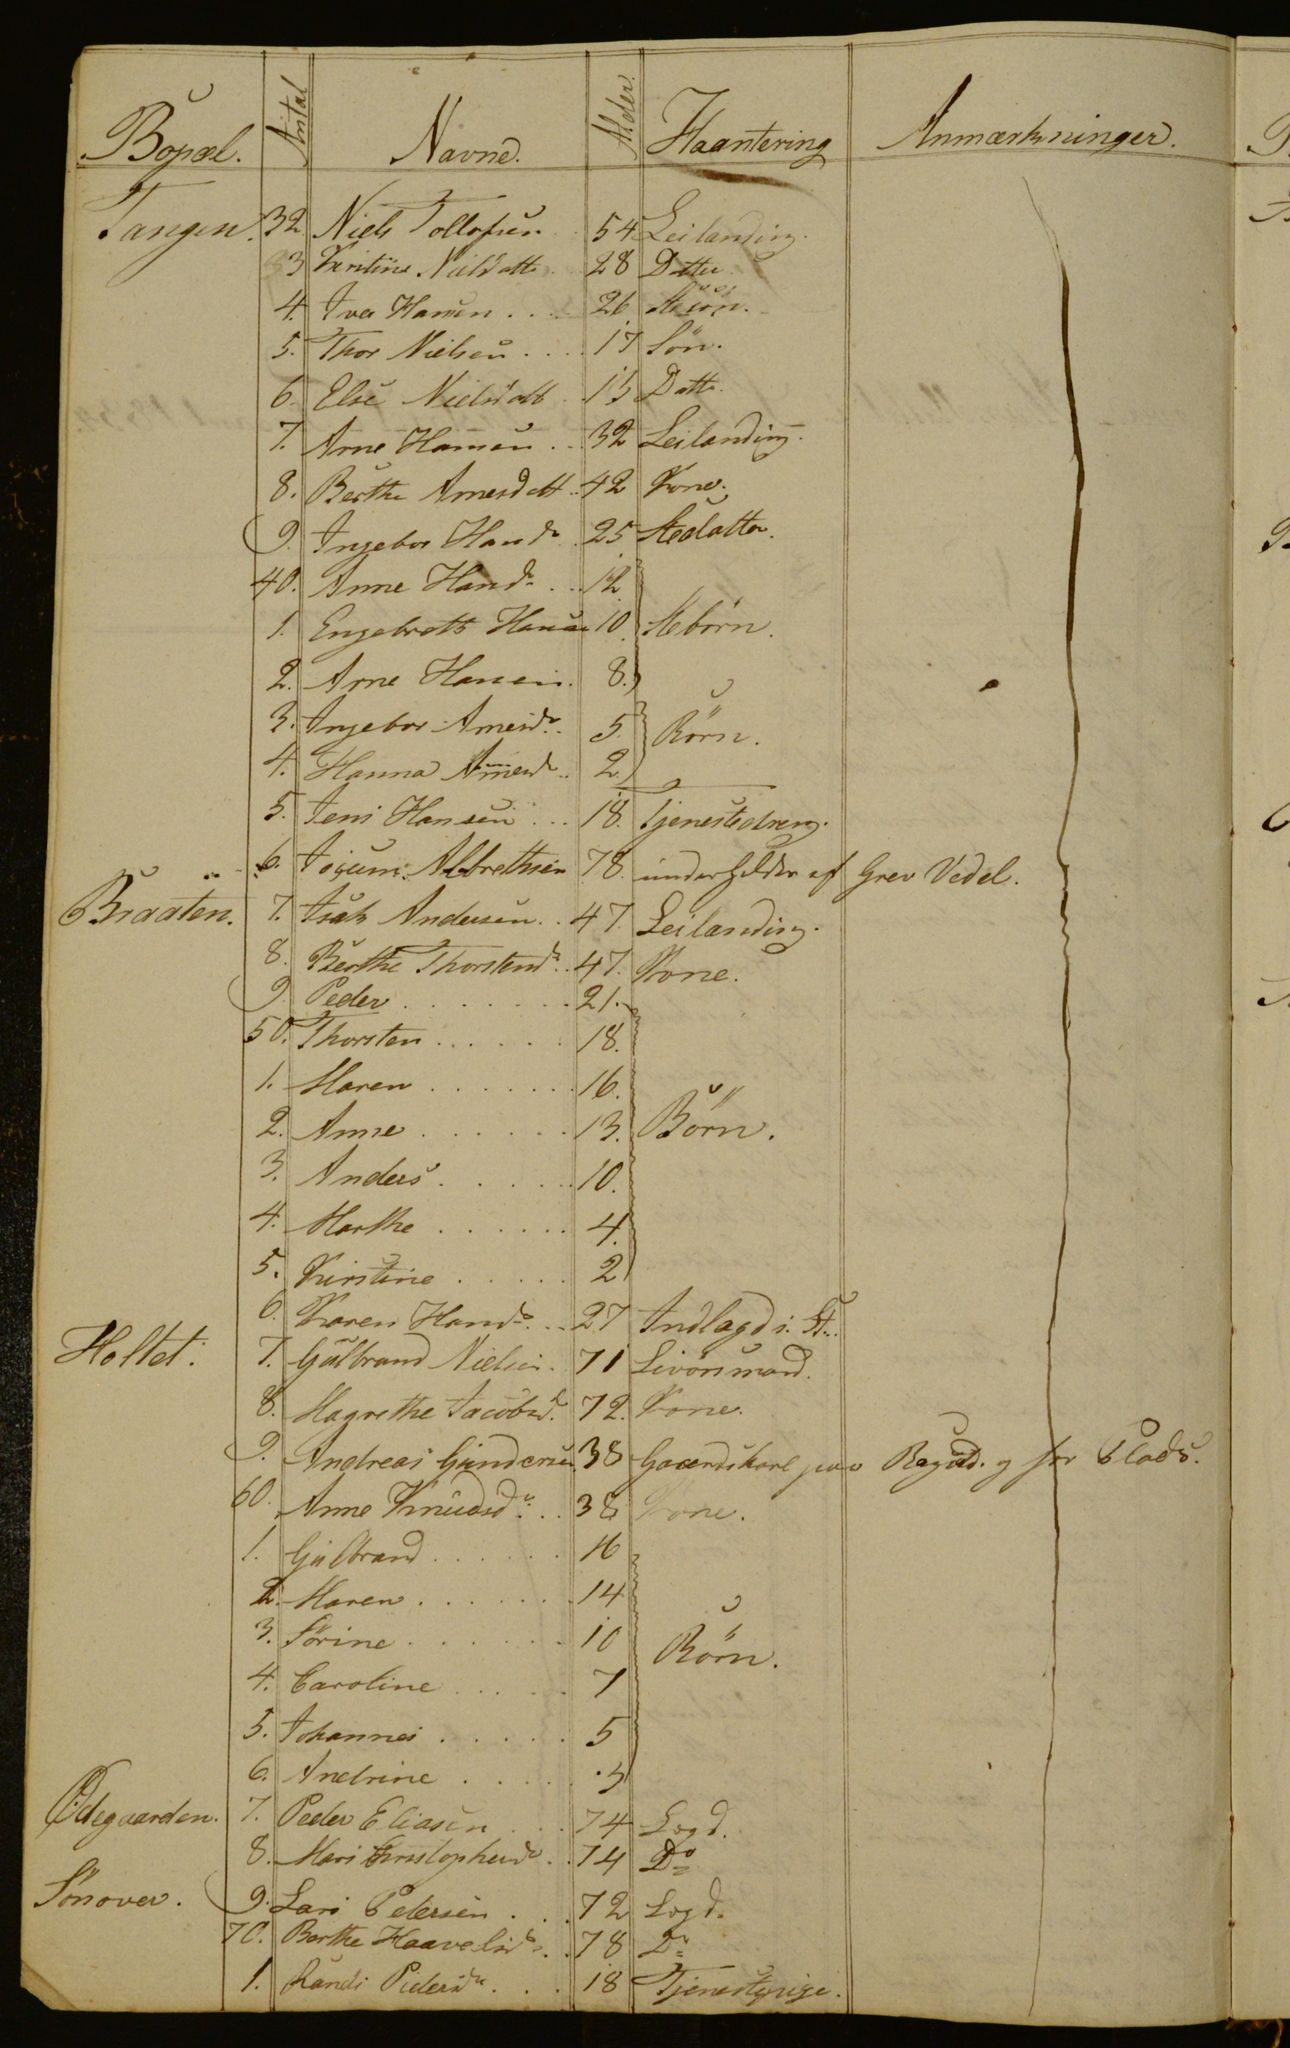 Bopæl. Antal Navne. Alder. Haantering Anmærkninger.
Tangen. 32 Niels Tollofsen 54 Leilænding.
33 Kirstine Nielsdatt 28 Datter
4. Iver Hansen . . . 26
5. Thor Nielsen . . . . 17 Sön.
6. Else Nielsdatt 13 Datte.
7. Arne Hansen . . . 32 Leilænding.
8. Berthe Arnesdatt .. 42 Kone.
9. Ingebor Hansdr 25 Steddatter.
40. Anne Hansdr . . . 12
1. Engebrett Hansen 10. Stebörn.
2. Arne Hansen. 8.
3. Ingebor Arnesdr. 5.
Börn.
4. Hanna Arnesdr.. 2
5. Jens Hansen . . . 18. Tjenestedreng.
6. Jocum Albrethsen 78. underholdes af Grev Vedel.
Braaten. 7. Isak Andersen . . 47. Leilænding.
8. Berthe Thorstensdr .. 47. Kone.
9. Peder . . . . . . . 21.
50. Thorsten . . . . . . 18.
1. Maren . . . . . . . 16.
2. Anne . . . . . . . 13. Börn.
3. Anders . . . . . . 10.
4. Marthe . . . . . . 4.
5. Kirstine . . . . . 2
6. Karen Hansdr. .. 27 Indlagd i. St..
Holtet. 7. Gulbrand Nielsen. 71 Livörsmand.
8. Magrethe Jacobsd. 72. Kone.
9. Andreas Gundersen. 38 Gaardskarl paa og for Plads.
60. Anne Knudsdr. . . 38 Kone.
1. Gulbrand . . . . . . 16
2. Maren . . . . . . . 14
3. Sörine . . . . . . . 10
Börn.
4. Caroline . . . . . 7
5. Johannes . . . . . 5
6. Andrine . . . . . 3
Ödegaarden. 7. Peder Eliasen . . . 74 Logd.
8. Mari Christophersdr . . 74 Do
Sönover. 9. Lars Pedersen . . . 72 Logd.
70. Berthe Haavelsdr. . . 78 Do
1. Randi Pedersdr. . . . 18 Tjenestepige.